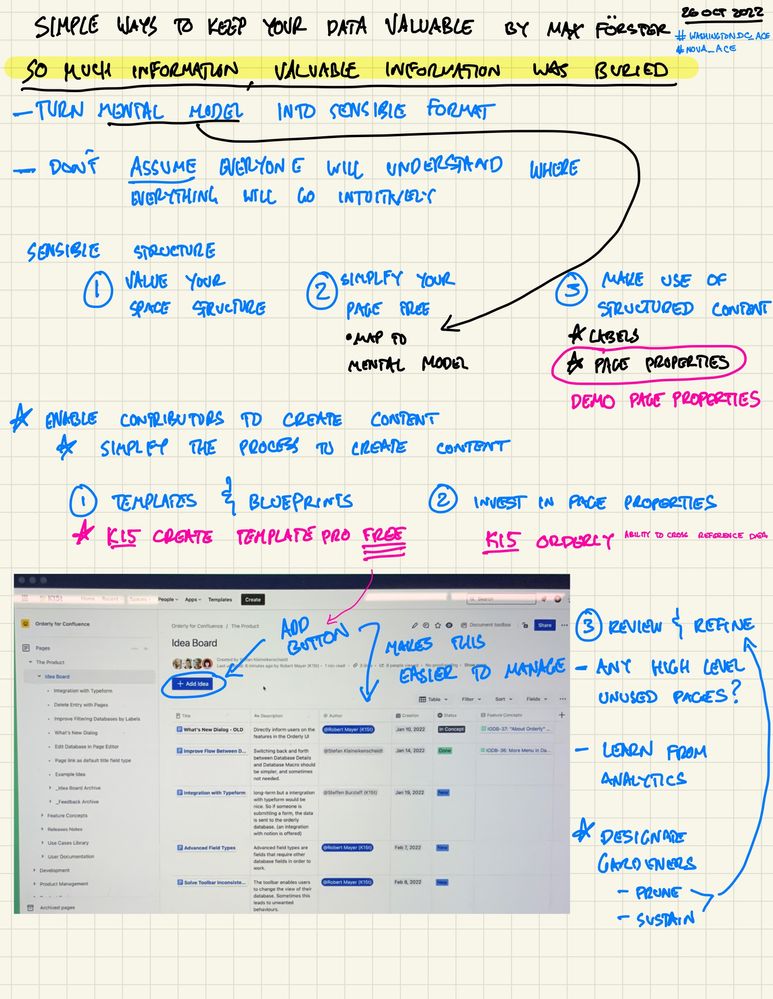 SIMPLE WAYS TO KEEP YOUR DATA VALUABLE BY MAX FÖRSTER
26 OCT 2022
# WASHINGTONDC_ACE
# NOVA_ACE
SO MUCH INFORMATION, VALUABLE INFORMATION WAS BURIED
– TURN MENTAL MODEL INTO SENSIBLE FORMAT
– DON'T ASSUME EVERYONE WILL UNDERSTAND WHERE
EVERYTHING WILL GO INTUITIVELY
SENSIBLE STRUCTURE
1 VALUE YOUR
SPACE STRUCTURE
2 SIMPLFY YOUR
PAGE FREE
• MAP TO
MENTAL MODEL
3 MAKE USE OF
STRUCTURED CONTENT
★ LABELS
★ PAGE PROPERTIES
DEMO PAGE PROPERTIES
★ ENABLE CONTRIBUTORS TO CREATE CONTENT
★ SIMPLIFY THE PROCESS TO CREATE CONTENT
1 TEMPLATES & BLUEPRINTS
2 INVEST IN PAGE PROPERTIES
★ K15 CREATE TEMPLATE PRO FREE
K15 ORDERLY ABILITY TO CROSS REFERENCE DATA
Home Recent Spaces People Apps Templates Create
Search
Orderly for Confluence
Pages
The Product
Idea Board
Integration with Typeform
Delete Entry with Pages
Improve Filtering Databases by Labels
What's New Dialog
Edit Database in Page Editor
Page link as default title field type
Example Idea
_Idea Board Archive
_Feedback Archive
Feature Concepts
Releases Notes
Use Cases Library
User Documentation
Development
Product Management
Archived pages
Orderly for Confluence / The Product
Document toolbox
Share
Idea Board
Created by Stefan Kleineikenscheidt
+ Add Idea
ADD
BUTTON
MAKES THIS
EASIER TO MANAGE
Table Filter Sort Fields
Title Description Author Creation Status Feature Concepts
What's New Dialog - OLD
Directly inform users on
the features in the Orderly UI
@Robert Mayer (K15t)
Jan 10, 2022
In Concept
IODB-37: "About Orderly" ...
Improve Flow Between D...
Switching back and forth
between Database Details
and Database Macro should
be simpler, and sometimes
not needed.
@Stefan Kleineikenscheidt
Jan 14, 2022
Done
IODB-36: More Menu in Da...
Integration with Typeform
long-form but a integration
with typeform would be
nice. So if someone is
submitting a form, the data
is sent to the orderly
database. (an integration
with notion is offered)
@Steffen Burzlaff (K15t)
Jan 19, 2022
New
Advanced Field Types
Advanced field types are
fields that require other
database fields in order to
work.
@Robert Mayer (K15t)
Feb 7, 2022
New
Solve Toolbar Inconsiste...
The toolbar enables users
to change the view of their
database. Sometimes this
leads to unwanted
behaviours.
@Robert Mayer (K15t)
Feb 8, 2022
New
3 REVIEW & REFINE
– ANY HIGH LEVEL
UNUSED PAGES?
– LEARN FROM
ANALYTICS
★ DESIGNATE
GARDENERS
– PRUNE
– SUSTAIN